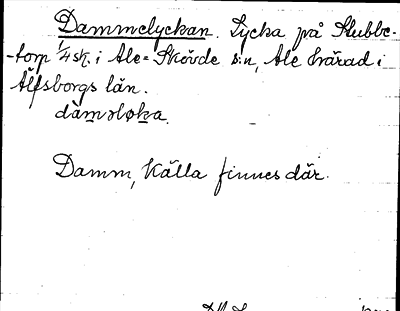 Dammelyckan. Lycka på Stubbe-
-torp 1/4 sk. i Ale-Skövde s:n, Ale härad i
Älfsborgs län.
dàməløka.
Damm, källa finnes där.